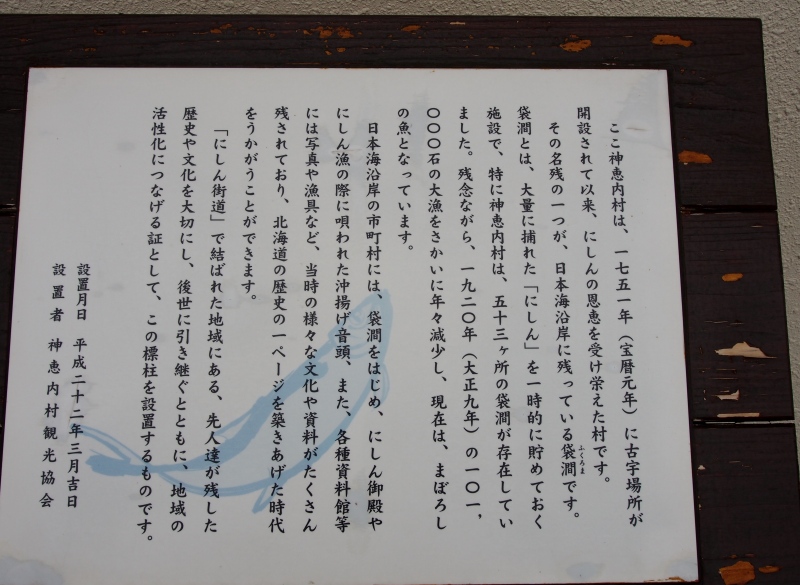 ここ神恵内村は、一七五一年（宝暦元年）に古宇場所が
開設されて以来、にしんの恩恵を受け栄えた村です。
その名残の一つが、日本海沿岸に残っている袋澗です。
ふくろま
袋澗とは、大量に捕れた「にしん」を一時的に貯めておく
施設で、特に神恵内村は、五十三ヶ所の袋澗が存在してい
ました。残念ながら、一九二〇年（大正九年）の一〇一，
〇〇〇石の大漁をさかいに年々減少し、現在は、まぼろし
の魚となっています。
日本海沿岸の市町村には、袋澗をはじめ、にしん御殿や
にしん漁の際に唄われた沖揚げ音頭、また、各種資料館等
には写真や漁具など、当時の様々な文化や資料がたくさん
残されており、北海道の歴史の一ページを築きあげた時代
をうかがうことができます。
「にしん街道」で結ばれた地域にある、先人達が残した
歴史や文化を大切にし、後世に引き継ぐとともに、地域の
活性化につなげる証として、この標柱を設置するものです。
設置月日　平成二十二年三月吉日
設置者　神恵内村観光協会